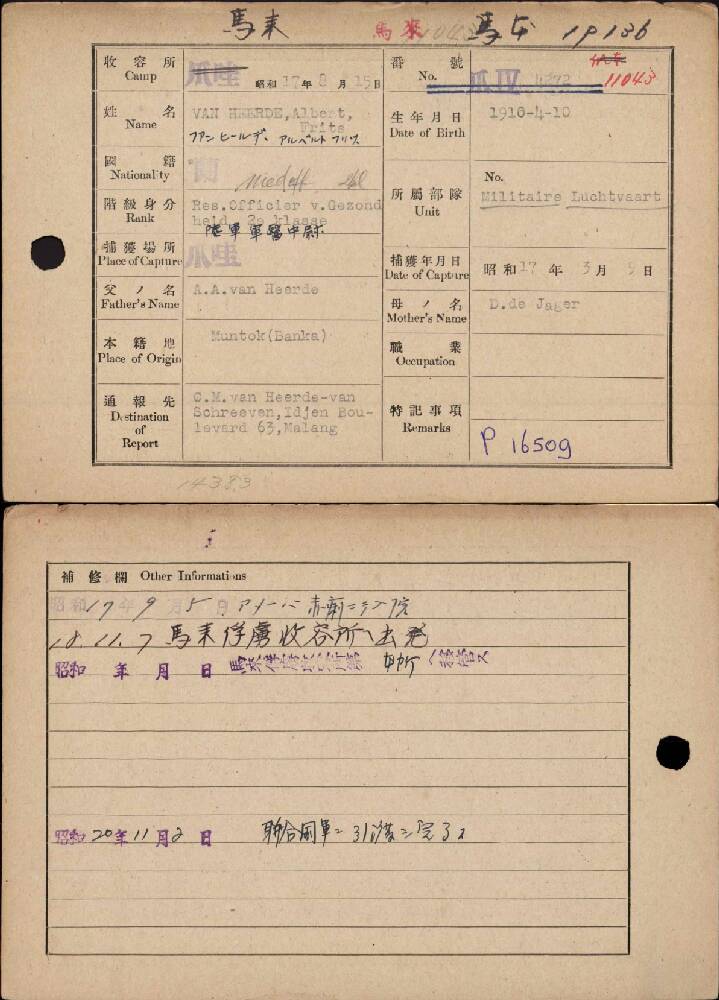 馬来 馬來 馬本 19136
收容所 Camp 爪哇 昭和17年8月15日
番號 No. 爪IV 4272 11043
姓名 Name VAN HEERDE, Albert, Frits
ファン ヒールデ、アルベルト フリツ
生年月日 Date of Birth 1916-4-10
國籍 Nationality 蘭
階級身分 Rank Res.Officier v.Gezond
heid, 2e klasse
陸軍軍醫中尉
所屬部隊 Unit No.
Militaire Luchtvaart
捕獲場所 Place of Capture 爪哇
捕獲年月日 Date of Capture 昭和17年3月9日
父ノ名 Father's Name A.A.van Heerde
母ノ名 Mother's Name D.de Jager
本籍地 Place of Origin Muntok(Banka)
職業 Occupation
通報先 Destination of Report
C.M.van Heerde-van
Schreeven, Idjen Bou-
levard 63, Malang
特記事項 Remarks
P 16509
14383
補修欄 Other Informations
昭和17年9月5日 アメーバ赤痢ニテ入院
18.11.7 馬来俘虜收容所ヘ出発
昭和 年 月 日 馬來俘虜收容所第
昭和20年11月2日 聯合國軍ニ引渡シ完了ス